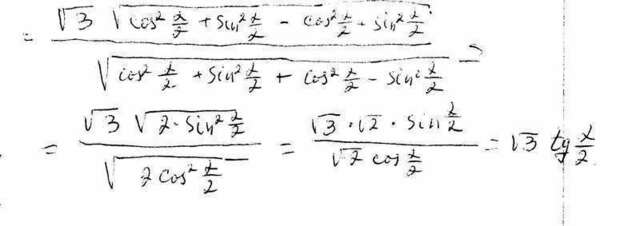 = √3 √(cos² x/2 + sin² x/2 - cos² x/2 + sin² x/2) / √(cos² x/2 + sin² x/2 + cos² x/2 - sin² x/2) =
= √3 √(2·sin² x/2) / √(2 cos² x/2) = √3 · √2 · sin x/2 / √2 cos x/2 = √3 tg x/2